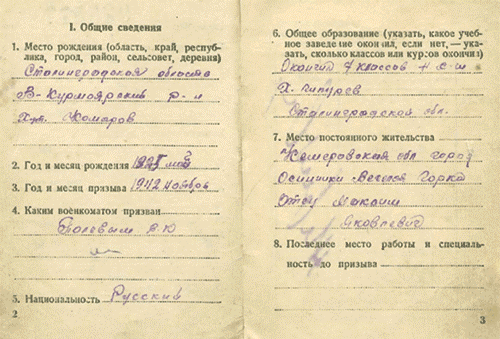 I. Общие сведения
1. Место рождения (область, край, респуб-
лика, город, район, сельсовет, деревня)
Сталинградская область
В-Курмоярский р-н
Хут. Комаров
2. Год и месяц рождения 1925 май
3. Год и месяц призыва 1942 ноябрь
4. Каким военкоматом призван
Полевым РВК
5. Национальность Русский
2
6. Общее образование (указать, какое учеб-
ное заведение окончил, если нет, — ука-
зать, сколько классов или курсов окончил)
Окончил 7 классов Н.С.Ш
Х.
Сталинградской обл.
7. Место постоянного жительства
Кемеровская обл город
Осинники Веселая Горка
Отец Максим
Яковлевич
8. Последнее место работы и специаль-
ность до призыва
3